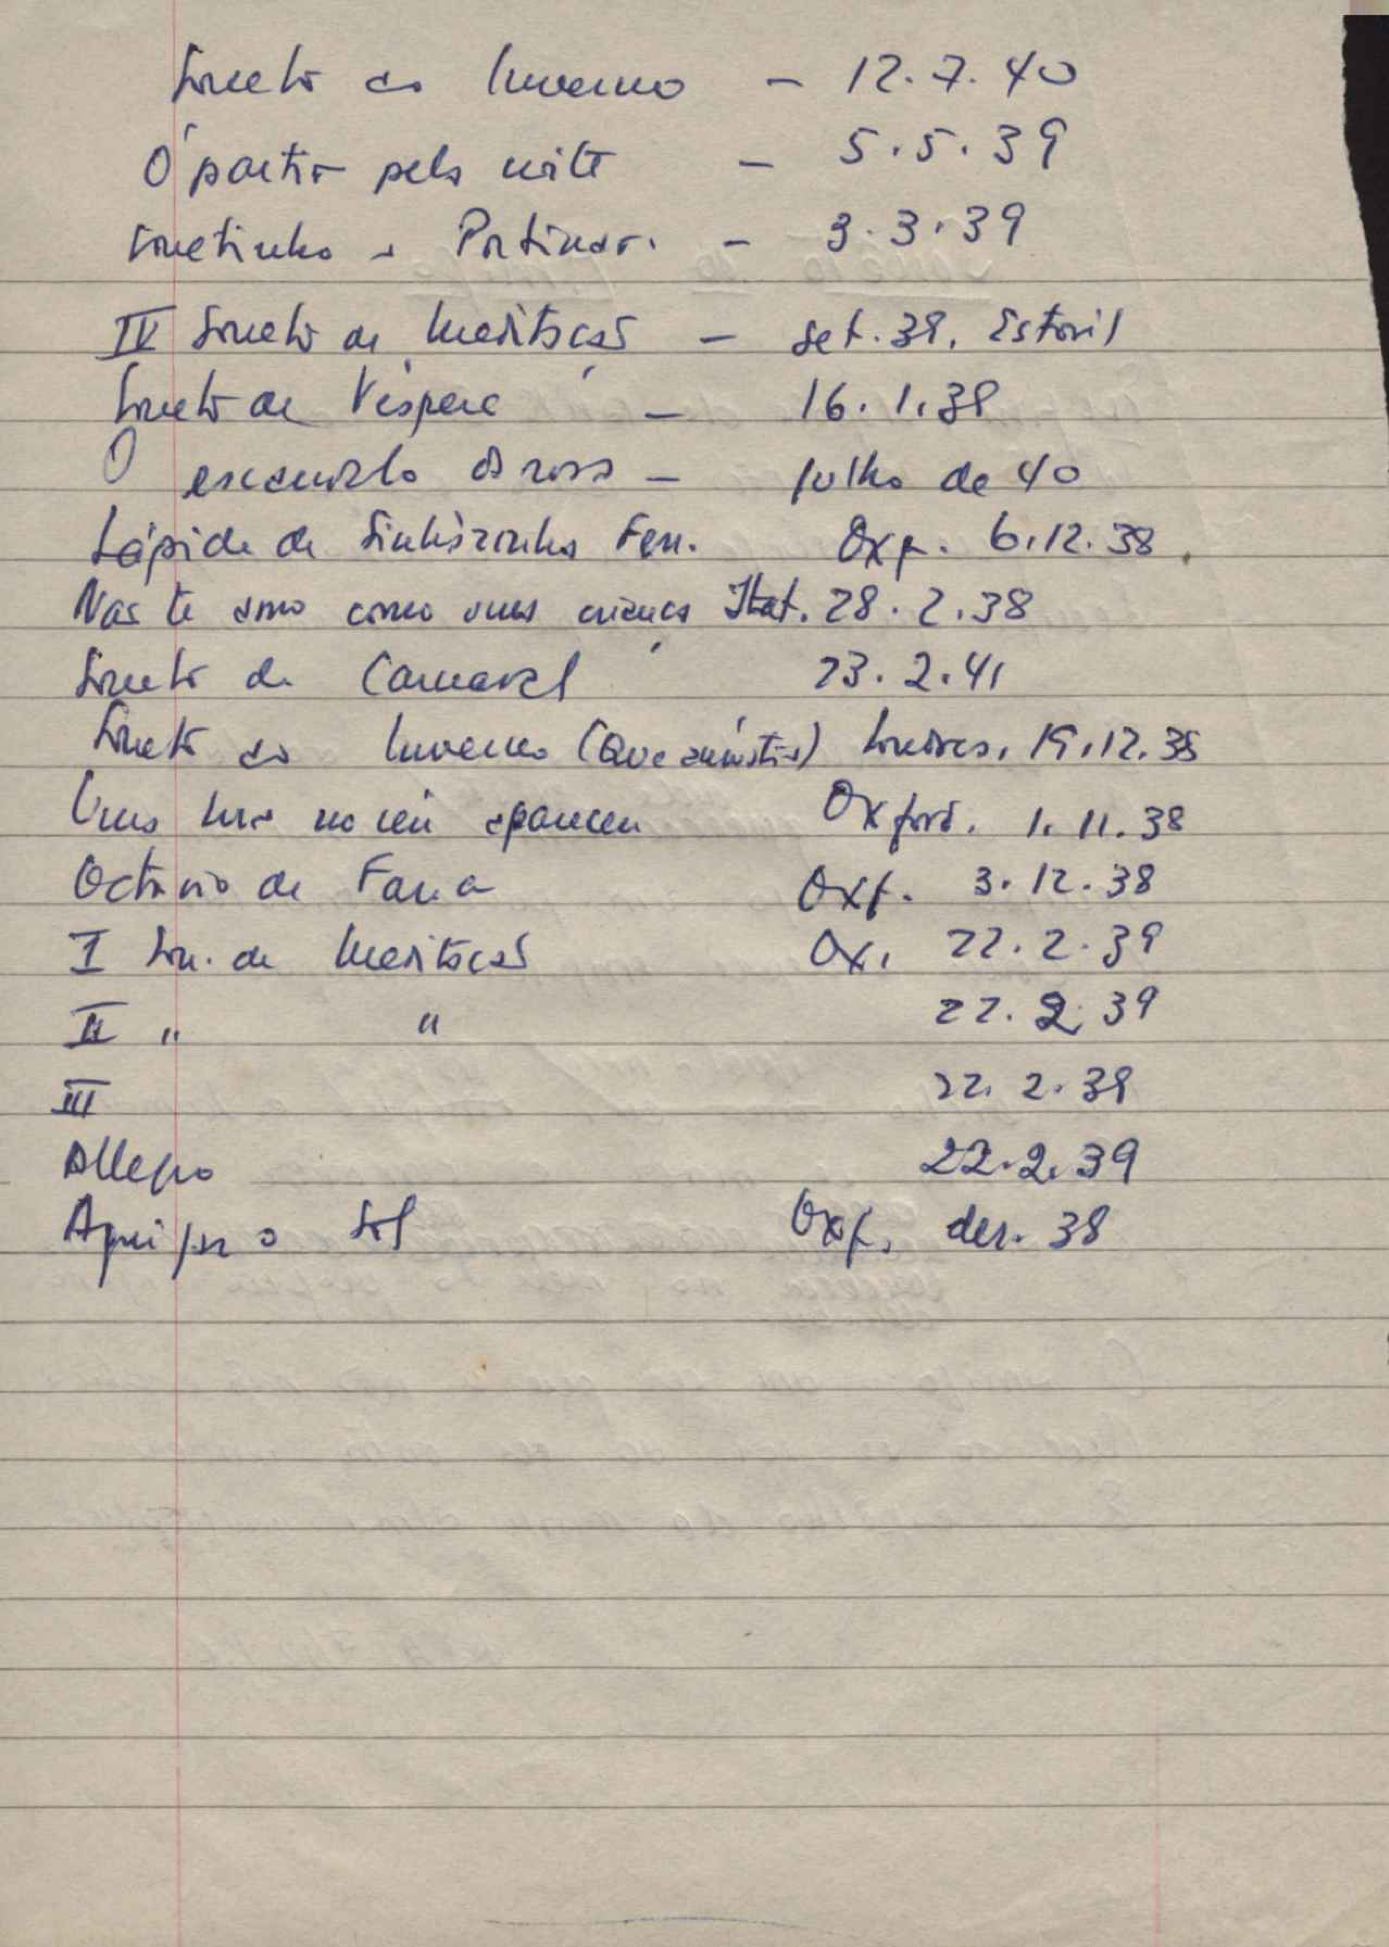 Soneto do Inverno – 12.7.40
Ó partir pela noite – 5.5.39
Sonetinho a Portinari – 3.3.39
IV Soneto de Meditação – set. 39. Estoril
Soneto de Véspera – 16.1.39
O escândalo da rosa – julho de 40
Lápide de Sinhàzinha Ferr. Oxf. 6.12.38
Não te amo como uma criança Itat. 28.2.38
Soneto de Carnaval 23.2.41
Soneto do Inverno (Que angústia) Londres, 19.12.38
Uma lua no céu apareceu Oxford. 1.11.38
Octávio de Faria Oxf. 3.12.38
I Son. de Meditação Ox. 22.2.39
II " " 22.2.39
III 22.2.39
Allegro 22.2.39
Aqui jaz o Sol Oxf. dez. 38